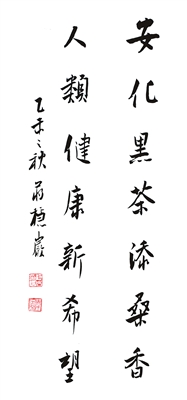 安化黑茶添桑香
人類健康新希望
乙未之秋 蔣